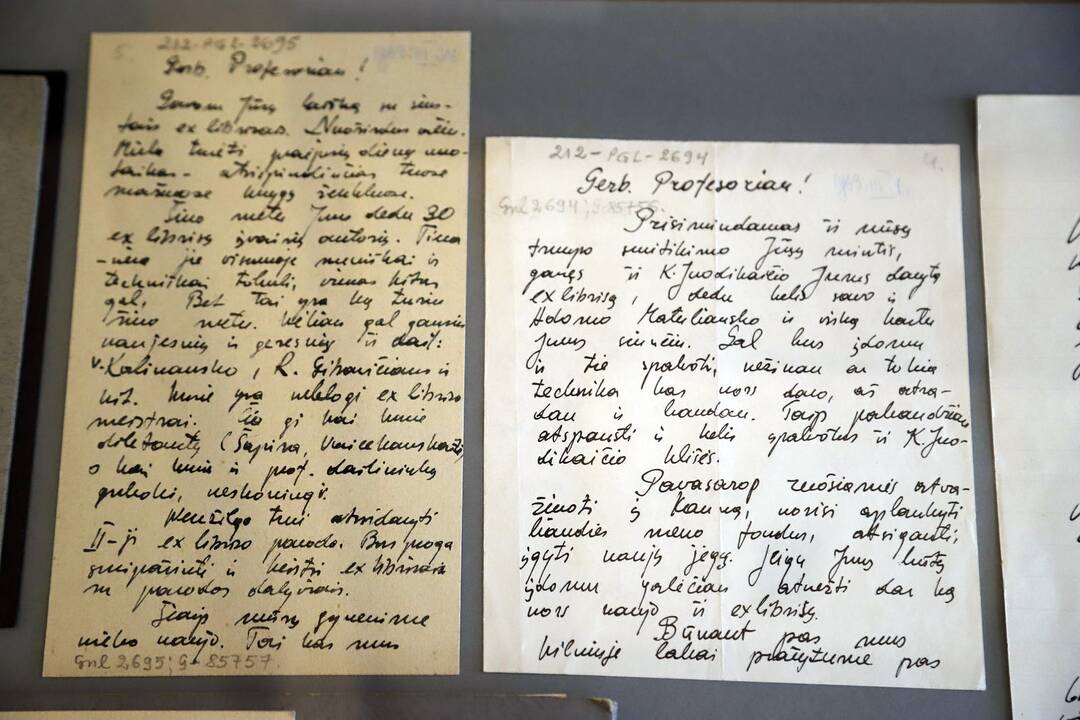 212-PGL-2695
Gerb. Profesoriau!
Gavom Jūsų laišką su sius-
tais ex librisais. Nuoširdus ačiū.
Miela turėti praėjusių dienų nuo-
taikas - atsispindinčias tuose
mažuose knygų ženkluose.
Šiuo metu Jums dedu 30
ex librisų įvairių autorių. Tiesa
-nėra jie visumoje meniškai ir
techniškai tobuli, vienas kitas
gal. Bet tai yra ką turiu
šiuo metu. Vėliau gal gausiu
naujesnių ir geresnių iš dail:
V. Kalinausko, R. Gibavičiaus ir
kit. Kurie yra neblogi ex libriso
meistrai. Čia gi kai kurie
diletantų (Šapira,
o kai kurie ir prof. dailininkų
gruboki, neskoningi.
Neužilgo turi atsidaryti
II-ji ex libriso paroda. Bus proga
susipažinti ir keistis ex librisais
su parodos dalyviais.
Šiaip mūsų gyvenime
nieko naujo. Tai kas mus
Gnl 2695; G-85757.
212-PGL-2694
4.
Gerb. Profesoriau!
Gnl 2694; G-85756.
Prisimindamas iš mūsų
trumpo susitikimo Jūsų mintis,
gavęs iš K. Juodikaičio Jums darytą
ex librisą, dedu kelis savo ir
Adomo Materliausko ir viską kartu
Jums siunčiu. Gal bus įdomu
ir tie spalvoti, nežinau ar tokia
technika kas nors daro, aš atra-
dau ir bandau. Taip pabandžiau
atspausti ir kelis spalvotus iš K. Juo-
dikaičio klišės.
Pavasarop ruošiamės atva-
žiuoti į Kauną, norisi aplankyti
liaudies meno fondus, atsigauti,
įgyti naujų jėgų. Jeigu Jums būtų
įdomu galėčiau atvežti dar ką
nors naujo iš ex librisų.
Būnant pas mus
Vilniuje labai prašytume pas